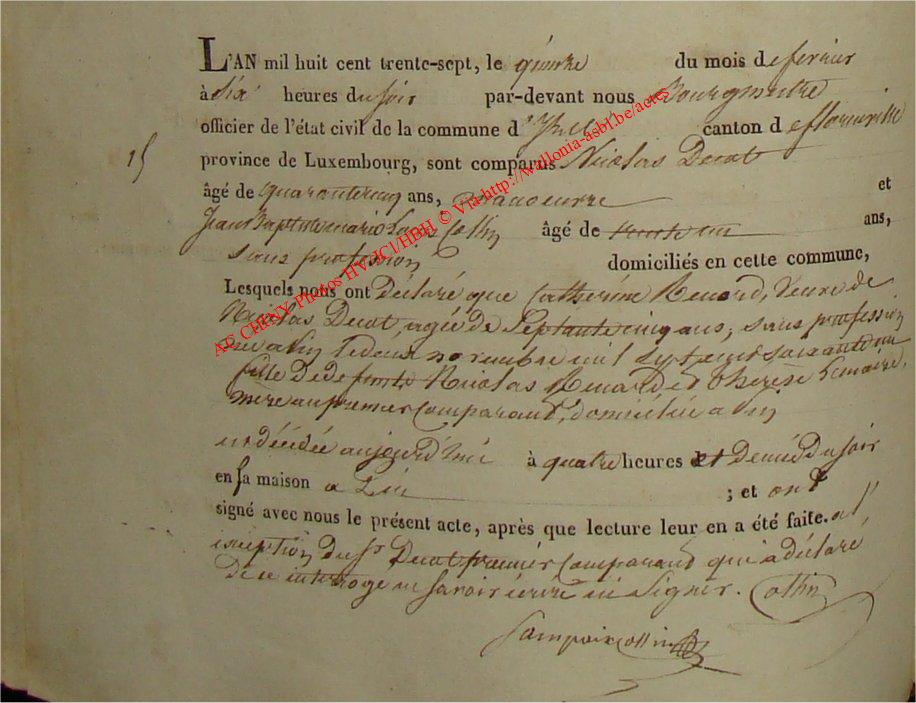 L'AN mil huit cent trente-sept, le quinze du mois de fevrier
à dix heures du soir par-devant nous Bourgmestre
officier de l'état civil de la commune d' canton de florenville
15
province de Luxembourg, sont comparus Nicolas Decot
âgé de quarantecinq ans, manoeuvre et
Jean Baptiste marie Collin âgé de trente un ans,
sans profession domiciliés en cette commune,
Lesquels nous ont déclaré que Catherine Renard, Veuve de
Nicolas Decot, agée de Septante cinq ans, sans profession
née a le deux novembre mil sept cent soixante un
fille de defunts Nicolas Renard et thérèse Lemaire,
mère au premier comparant, domiciliée a
est décédée aujourd'hui à quatre heures et Demie Du soir
en sa maison a ; et ont
signé avec nous le présent acte, après que lecture leur en a été faite. a l'
exception du Sr Decot premier comparant qui a déclaré
De ce interrogé ne savoir écrire ni signer. Collin
AC CHINY Photos HV-JCI/HBH © Via http://wallonia-asbl.be/actes